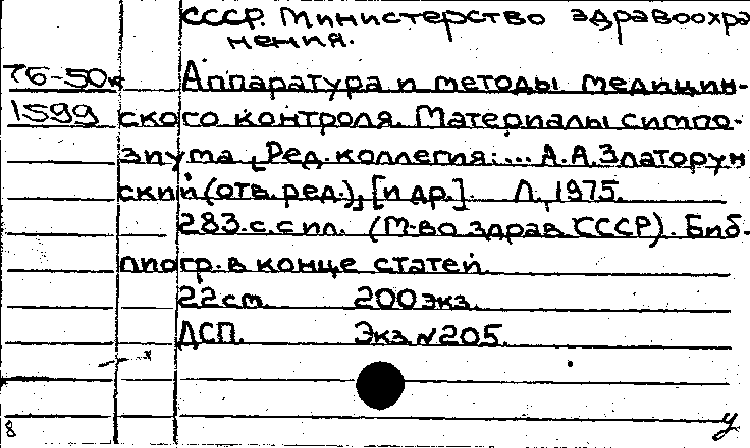 СССР. Министерство здравоохра
нения.
76-50к Аппаратура и методы медицин-
1599 ского контроля. Материалы симпо-
зиума. [Ред. коллегия: ... А.А. Златорун
ский (отв. ред.), [и др.] Л., 1975.
283.с. с ил. (М-во здрав. СССР). Биб-
лиогр. в конце статей.
22 см. 200 экз.
ДСП. Экз. №205.
8 у